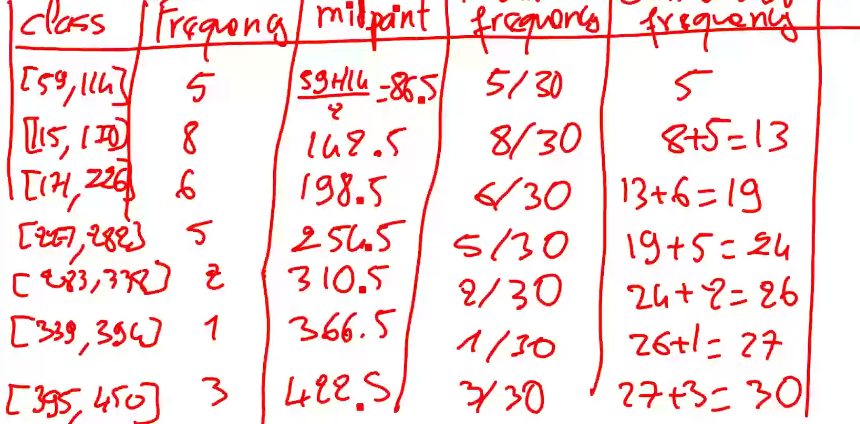 class Frequency midpoint frequency frequency
[59,114] 5 59+114/2=86.5 5/30 5
[115,170] 8 142.5 8/30 8+5=13
[171,226] 6 198.5 6/30 13+6=19
[227,282] 5 254.5 5/30 19+5=24
[283,338] 2 310.5 2/30 24+2=26
[339,394] 1 366.5 1/30 26+1=27
[395,450] 3 422.5 3/30 27+3=30